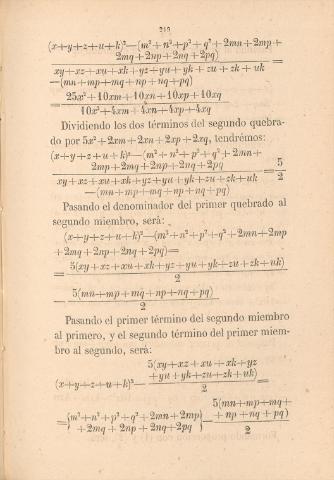 219
(x+y+z+u+k)²—(m²+n²+p²+q²+2mn+2mp+
2mq+2np+2nq+2pq)
xy+xz+xu+xk+yz+yu+yk+zu+zk+uk
—(mn+mp+mq+np+nq+pq)
=
= 25x²+10xm+10xn+10xp+10xq
10x²+4xm+4xn+4xp+4xq
Dividiendo los dos términos del segundo quebra-
do por 5x²+2xm+2xn+2xp+2xq, tendrémos:
(x+y+z+u+k)²—(m²+n²+p²+q²+2mn+
2mp+2mq+2np+2nq+2pq
xy+xz+xu+xk+yz+yu+yk+zu+zk+uk
—(mn+mp+mq+np+nq+pq)
= 5
2
Pasando el denominador del primer quebrado al
segundo miembro, será:
(x+y+z+u+k)²—(m²+n²+p²+q²+2mn+2mp
+2mq+2np+2nq+2pq)=
= 5(xy+xz+xu+xk+yz+yu+yk+zu+zk+uk)
2
— 5(mn+mp+mq+np+nq+pq)
2
Pasando el primer término del segundo miembro
al primero, y el segundo término del primer miem-
bro al segundo, será:
5(xy+xz+xu+xk+yz
+yu+yk+zu+zk+uk)
(x+y+z+u+k)²— =
2
5(mn+mp+mq+
={m²+n²+p²+q²+2mn+2mp} +np+nq+pq)
+2mq+2np+2nq+2pq — 2